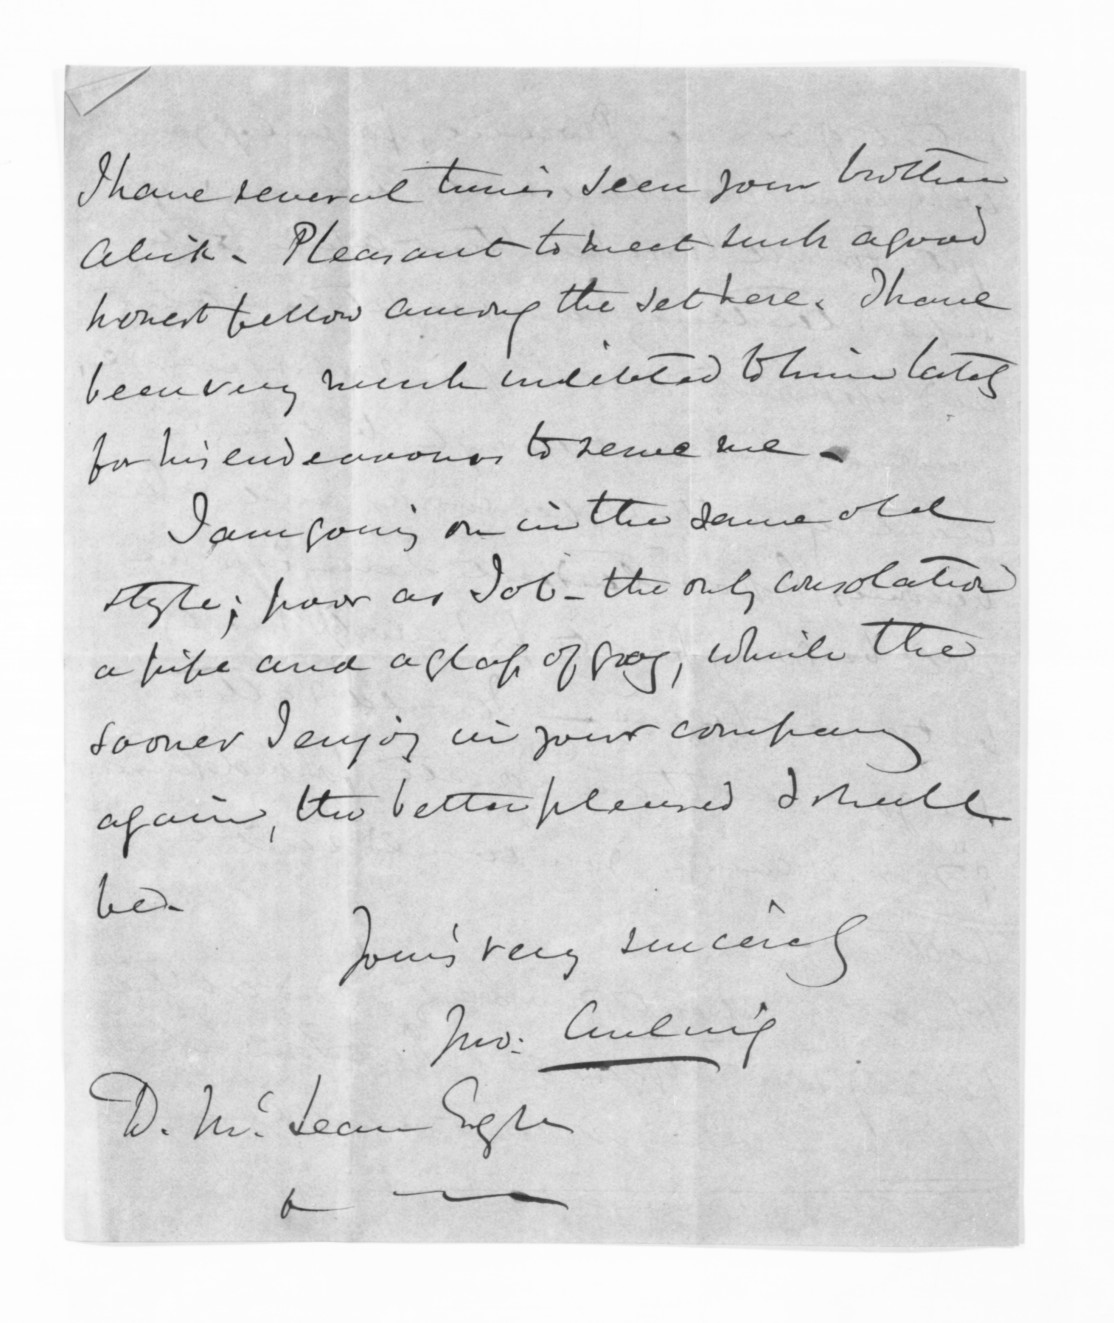 I have several times seen your brother
Alick. Pleasant to meet such a good
honest fellow among the set here. I have
been very much indebted to him lately
for his endeavours to serve me.
I am going on in the same old
style; poor as Job - the only consolation
a pipe and a glass of grog, which the
sooner I enjoy in your company
again, the better pleased I shall
be.
Your's very sincerely
Jno:
D. McLean Esqre